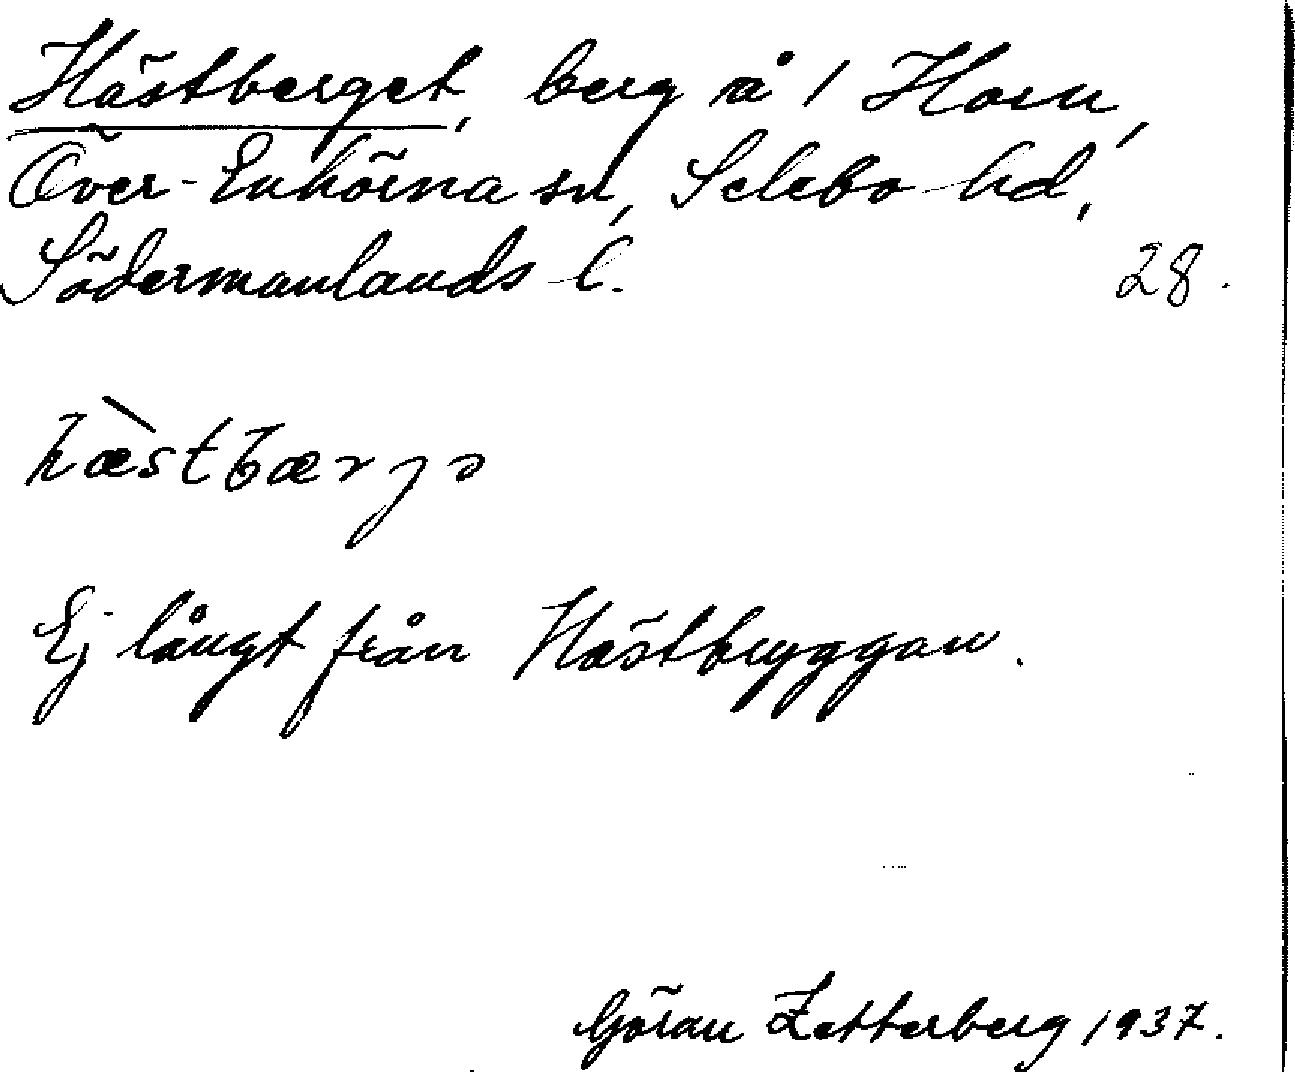 Hästberget, berg å 1 Horn,
Över-Enhörna sn, Selebo hd,
Södermanlands l. 28.
hæ̀stbærjə
Ej långt från Hästbryggan.
Göran Zetterberg 1937.